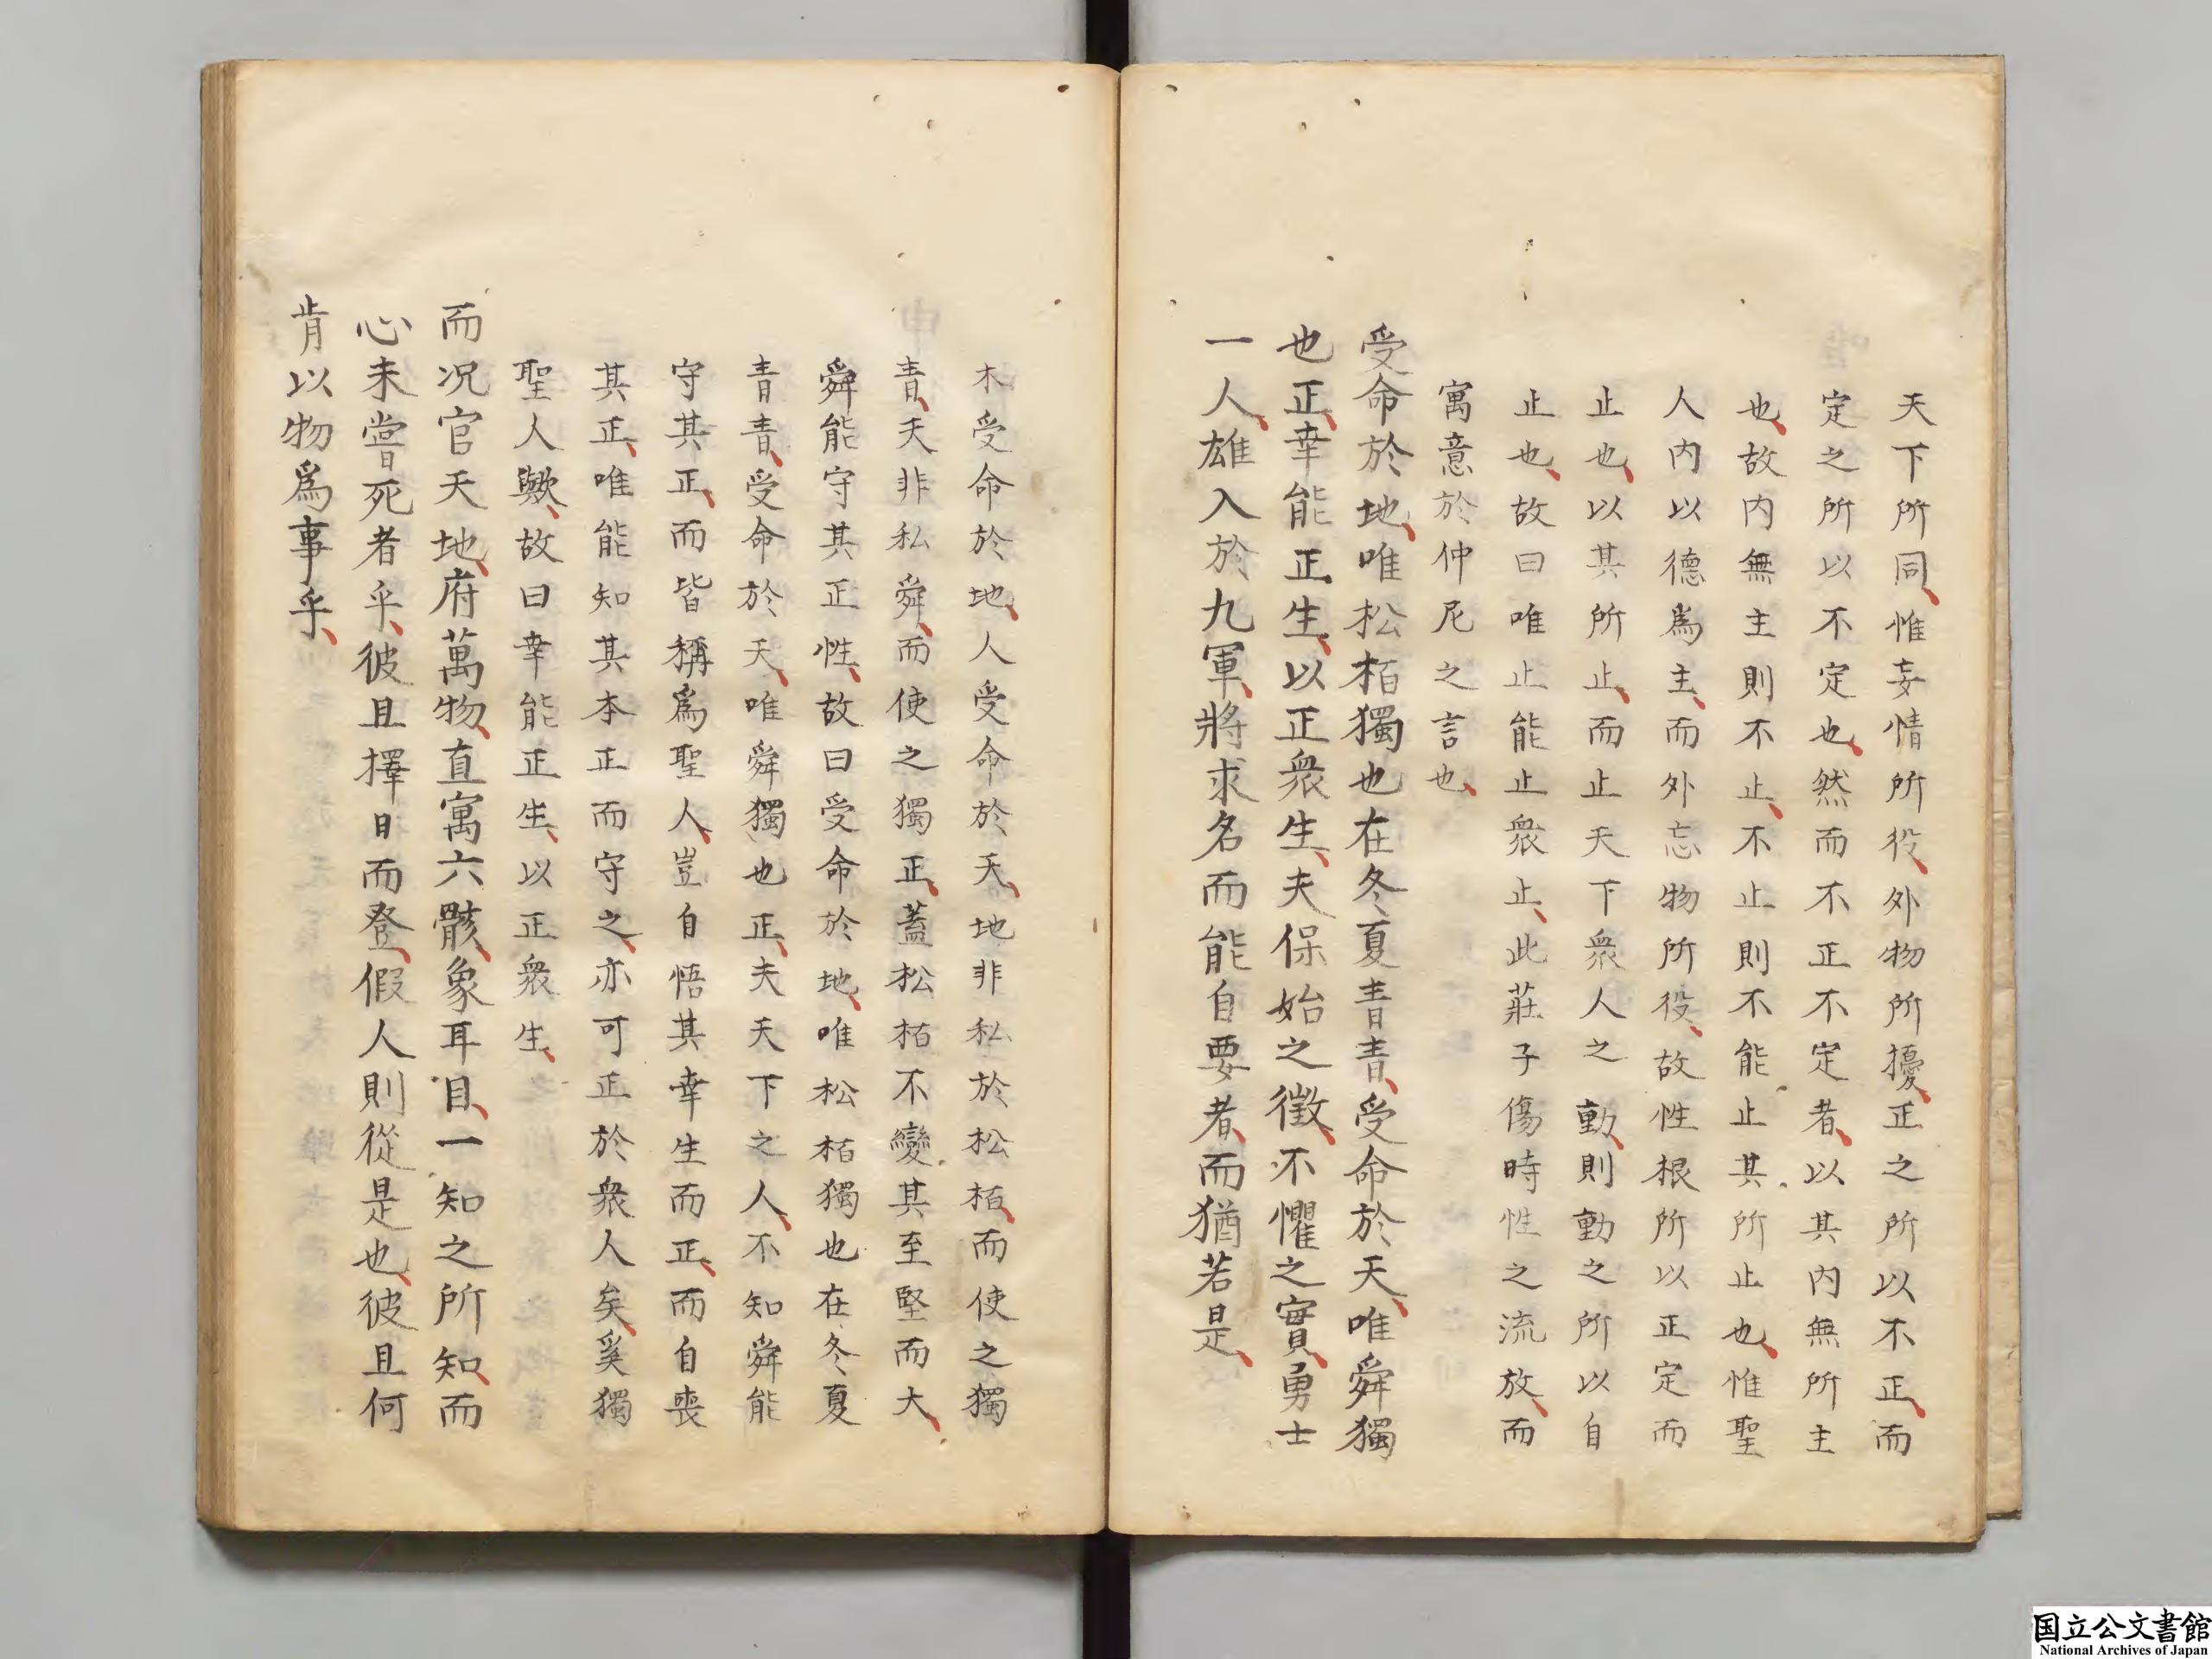 天下所同惟妄情所役外物所擾正之所以不正而
定之所以不定也然而不正不定者以其内無所主
也故内無主則不止不止則不能止其所止也惟聖
人内以德爲主而外忘物所役故性根所以正定而
止也以其所止而止天下衆人之動則動之所以自
止也故曰唯止能止衆止此莊子傷時性之流放而
寓意於仲尼之言也
受命於地唯松栢獨也在冬夏青青受命於天唯舜獨
也正幸能正生以正衆生夫保始之徵不懼之實勇士
一人雄入於九軍將求名而能自要者而猶若是
木受命於地人受命於天地非私於松栢而使之獨
青天非私舜而使之獨正蓋松栢不變其至堅而大
舜能守其正性故曰受命於地唯松栢獨也在冬夏
青青受命於天唯舜獨也正夫天下之人不知舜能
守其正而皆稱爲聖人豈自悟其幸生而正而自喪
其正唯能知其本正而守之亦可正於衆人矣奚獨
聖人歟故曰幸能正生以正衆生
而況官天地府萬物直寓六骸象耳目一知之所知而
心未嘗死者乎彼且擇日而登假人則從是也彼且何
肯以物爲事乎
国立公文書館
National Archives of Japan